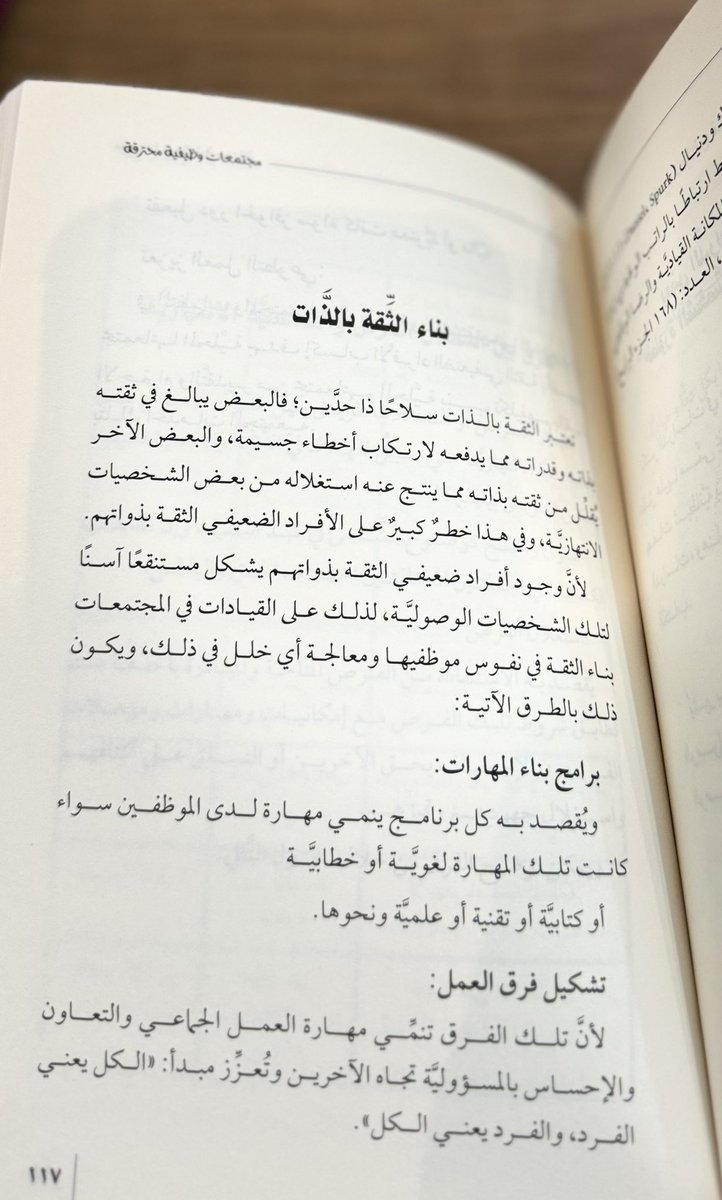 مجتمعات وظيفية محترقة
بناء الثِّقة بالذَّات
تعتبر الثقة بالذات سلاحًا ذا حدَّين؛ فالبعض يبالغ في ثقته
بذاته وقدراته مما يدفعه لارتكاب أخطاء جسيمة، والبعض الآخر
يُقلِّل من ثقته بذاته مما ينتج عنه استغلاله من بعض الشخصيات
الانتهازيَّة، وفي هذا خطرٌ كبيرٌ على الأفراد الضعيفي الثقة بذواتهم.
لأنَّ وجود أفراد ضعيفي الثقة بذواتهم يشكل مستنقعًا آسنًا
لتلك الشخصيات الوصوليَّة، لذلك على القيادات في المجتمعات
بناء الثقة في نفوس موظفيها ومعالجة أي خلل في ذلك، ويكون
ذلك بالطرق الآتية:
برامج بناء المهارات:
ويُقصد به كل برنامج ينمي مهارة لدى الموظفين سواء
كانت تلك المهارة لغويَّة أو خطابيَّة
أو كتابيَّة أو تقنية أو علميَّة ونحوها.
تشكيل فرق العمل:
لأنَّ تلك الفرق تنمِّي مهارة العمل الجماعي والتعاون
والإحساس بالمسؤوليَّة تجاه الآخرين وتُعزِّز مبدأ: «الكل يعني
الفرد، والفرد يعني الكل».
١١٧
ودنيال (Spark
ارتباطًا بالراتب
المكانة القياديَّة والرضا
العدد: (١٦٨ الجزء